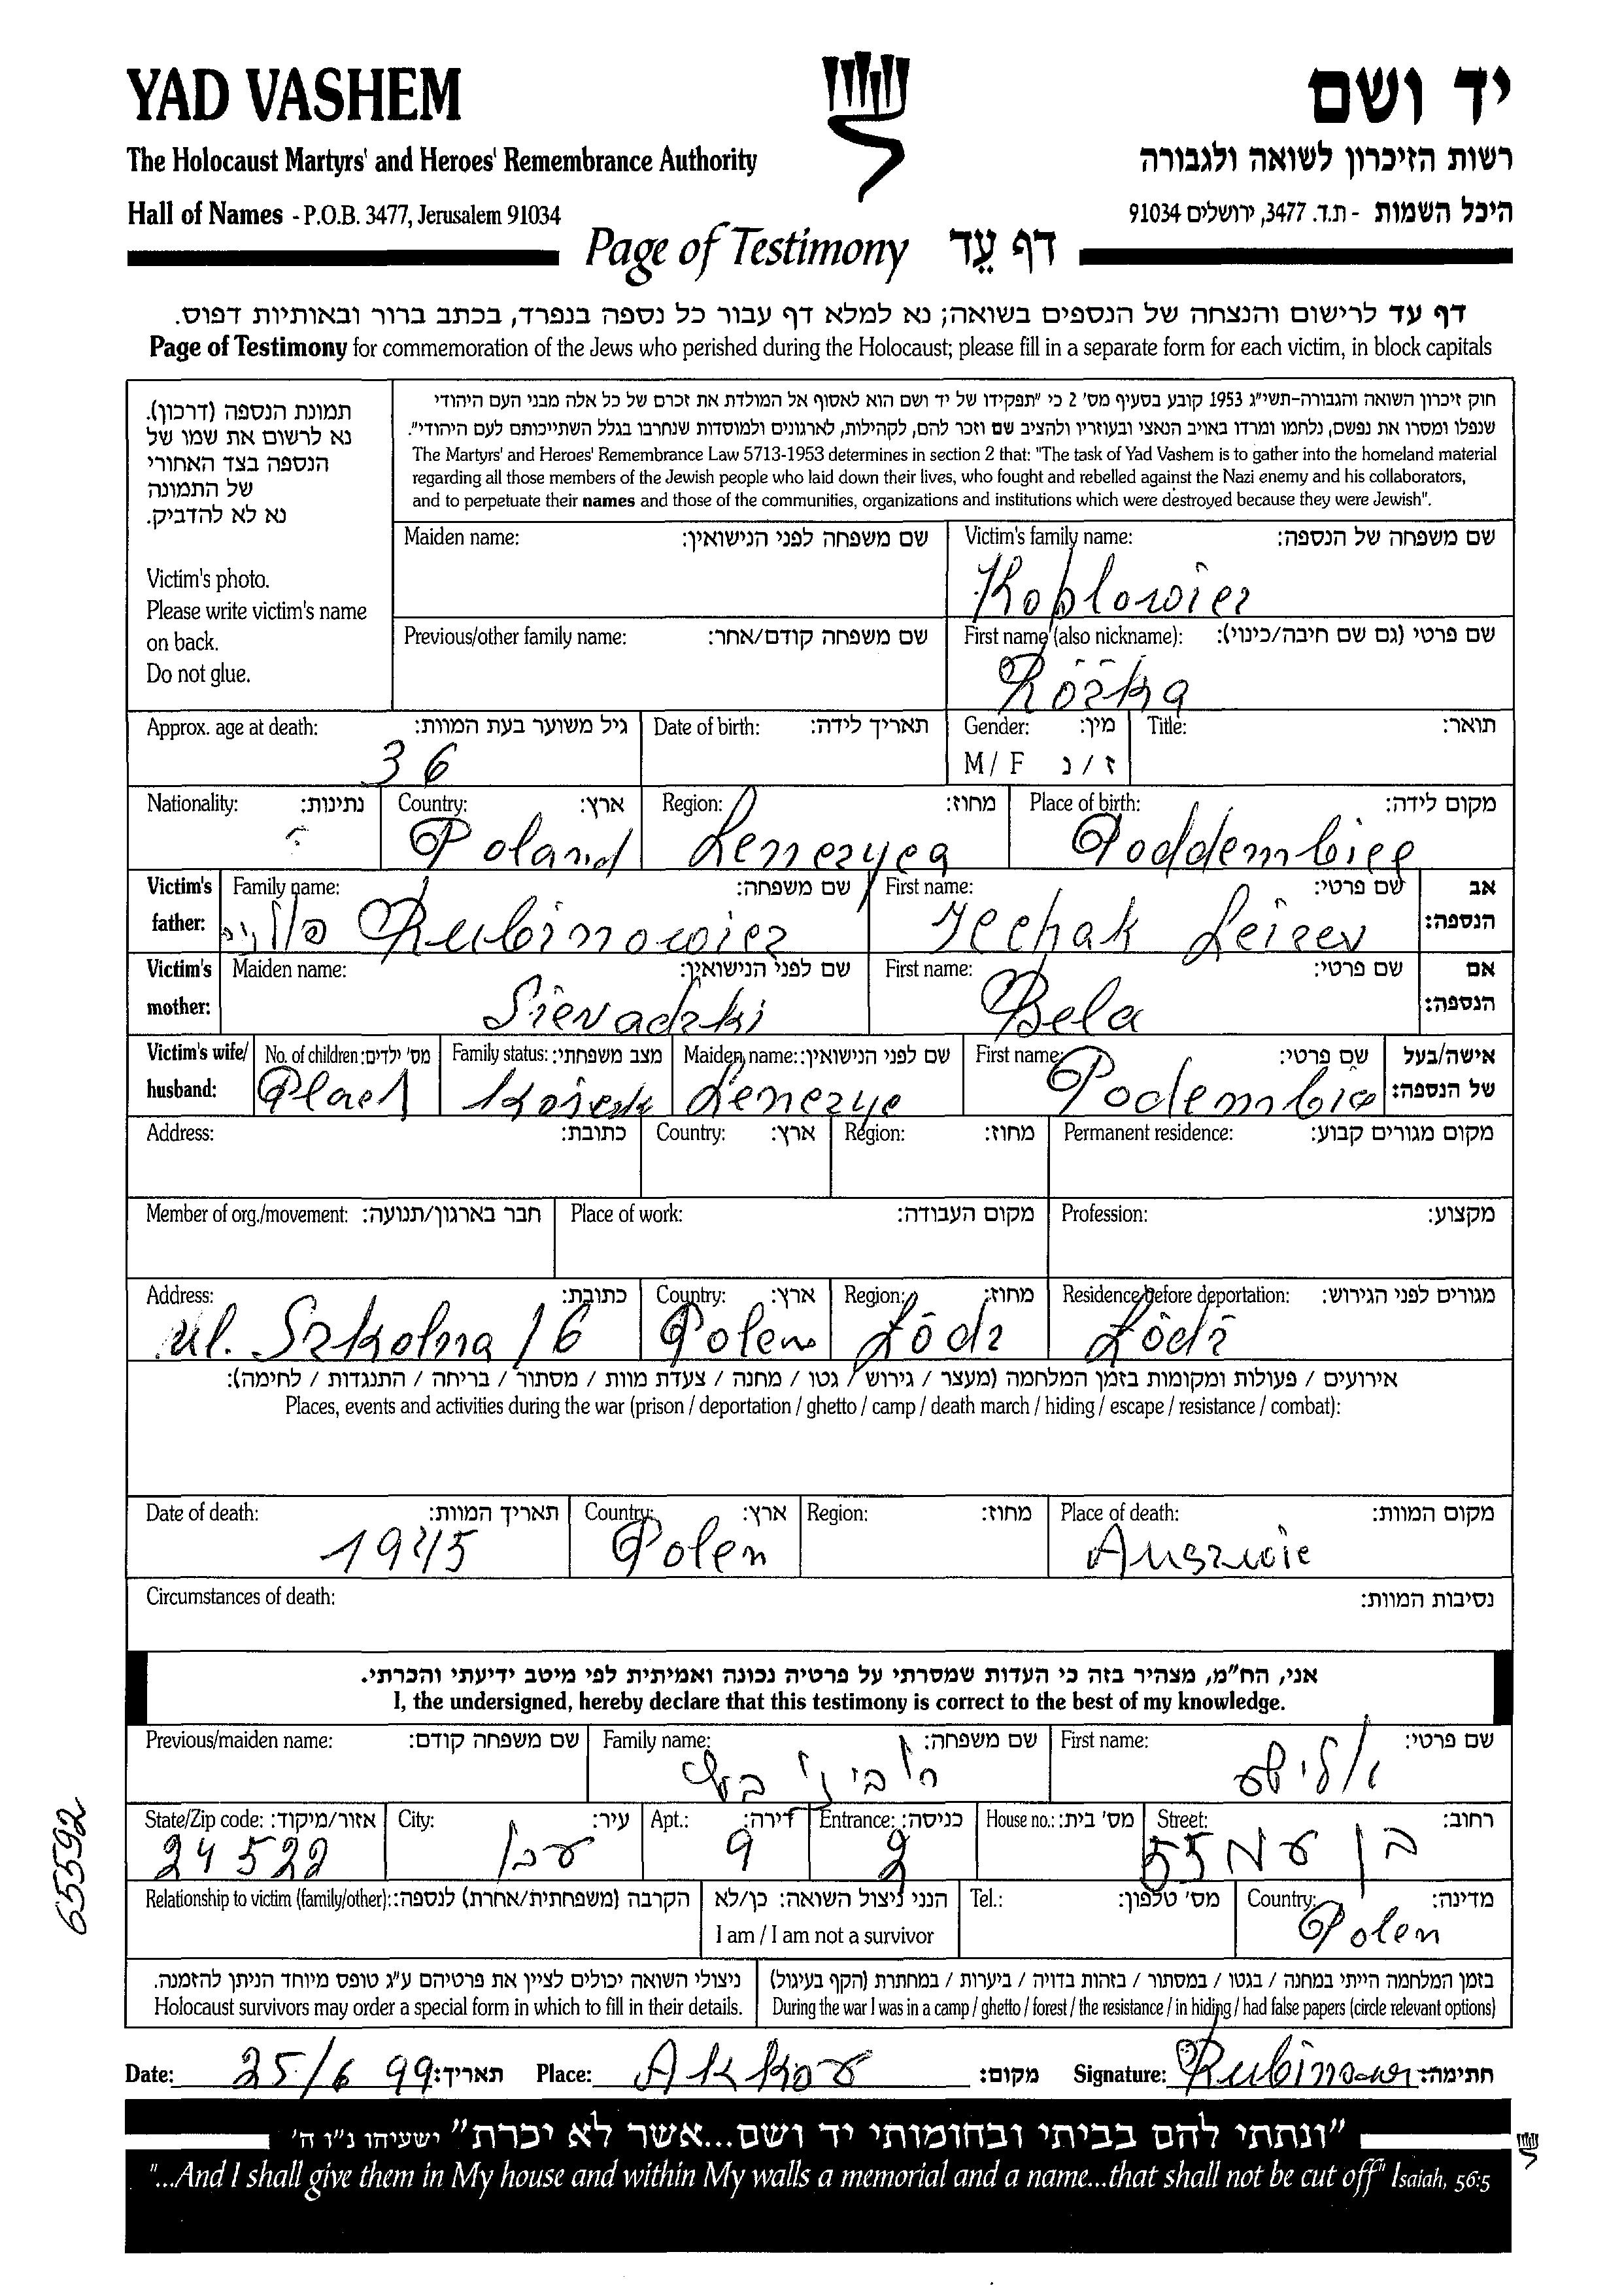 YAD VASHEM
יד ושם
The Holocaust Martyrs' and Heroes' Remembrance Authority
רשות הזיכרון לשואה ולגבורה
Hall of Names - P.O.B. 3477, Jerusalem 91034
היכל השמות - ת.ד. 3477, ירושלים 91034
Page of Testimony דף עֵד
דף עד לרישום והנצחה של הנספים בשואה; נא למלא דף עבור כל נספה בנפרד, בכתב ברור ובאותיות דפוס.
Page of Testimony for commemoration of the Jews who perished during the Holocaust; please fill in a separate form for each victim, in block capitals
תמונת הנספה (דרכון).
נא לרשום את שמו של
הנספה בצד האחורי
של התמונה
נא לא להדביק.
Victim's photo.
Please write victim's name
on back.
Do not glue.
חוק זיכרון השואה והגבורה-תשי"ג 1953 קובע בסעיף מס' 2 כי "תפקידו של יד ושם הוא לאסוף אל המולדת את זכרם של כל אלה מבני העם היהודי
שנפלו ומסרו את נפשם, נלחמו ומרדו באויב הנאצי ובעוזריו ולהציב שם וזכר להם, לקהילות, לארגונים ולמוסדות שנחרבו בגלל השתייכותם לעם היהודי".
The Martyrs' and Heroes' Remembrance Law 5713-1953 determines in section 2 that: "The task of Yad Vashem is to gather into the homeland material
regarding all those members of the Jewish people who laid down their lives, who fought and rebelled against the Nazi enemy and his collaborators,
and to perpetuate their names and those of the communities, organizations and institutions which were destroyed because they were Jewish".
Maiden name: שם משפחה לפני הנישואין:
Victim's family name: שם משפחה של הנספה:
Koplowicz
Previous/other family name: שם משפחה קודם/אחר:
First name (also nickname): שם פרטי (גם שם חיבה/כינוי):
Różka
Approx. age at death: גיל משוער בעת המוות:
36
Date of birth: תאריך לידה:
Gender: מין:
M / F ז / נ
Title: תואר:
Nationality: נתינות:
?
Country: ארץ:
Poland
Region: מחוז:
Lenczyca
Place of birth: מקום לידה:
Poddembice
Victim's father: Family name: שם משפחה:
Rubinowicz
First name: שם פרטי:
Icchak Leizer
אב הנספה:
Victim's mother: Maiden name: שם לפני הנישואין:
Sieradzki
First name: שם פרטי:
Bela
אם הנספה:
Victim's wife/ husband:
No. of children: מס' ילדים:
Family status: מצב משפחתי:
Maiden name: שם לפני הנישואין:
Lenczyc
First name: שם פרטי:
Podembic
אישה/בעל של הנספה:
Address: כתובת:
Country: ארץ:
Region: מחוז:
Permanent residence: מקום מגורים קבוע:
Member of org./movement: חבר בארגון/תנועה:
Place of work: מקום העבודה:
Profession: מקצוע:
Address: כתובת:
ul. Szkolna 16
Country: ארץ:
Polen
Region: מחוז:
Łódz
Residence before deportation: מגורים לפני הגירוש:
Łódź
אירועים / פעולות ומקומות בזמן המלחמה (מעצר / גירוש / גטו / מחנה / צעדת מוות / מסתור / בריחה / התנגדות / לחימה):
Places, events and activities during the war (prison / deportation / ghetto / camp / death march / hiding / escape / resistance / combat):
Date of death: תאריך המוות:
1945
Country: ארץ:
Polen
Region: מחוז:
Place of death: מקום המוות:
Auszwic
Circumstances of death: נסיבות המוות:
אני, הח"מ, מצהיר בזה כי העדות שמסרתי על פרטיה נכונה ואמיתית לפי מיטב ידיעתי והכרתי.
I, the undersigned, hereby declare that this testimony is correct to the best of my knowledge.
Previous/maiden name: שם משפחה קודם:
Family name: שם משפחה:
First name: שם פרטי:
State/Zip code: אזור/מיקוד:
24522
City: עיר:
עכו
Apt.: דירה:
9
Entrance: כניסה:
2
House no.: מס' בית:
Street: רחוב:
בן עמי 55
Relationship to victim (family/other): הקרבה (משפחתית/אחרת) לנספה:
הנני ניצול השואה: כן/לא
I am / I am not a survivor
Tel.: מס' טלפון:
Country: מדינה:
Polen
ניצולי השואה יכולים לציין את פרטיהם ע"ג טופס מיוחד הניתן להזמנה.
Holocaust survivors may order a special form in which to fill in their details.
בזמן המלחמה הייתי במחנה / בגטו / במסתור / בזהות בדויה / ביערות / במחתרת (הקף בעיגול)
During the war I was in a camp / ghetto / forest / the resistance / in hiding / had false papers (circle relevant options)
Date: 25/6 99 תאריך: Place: Akko עכו מקום: Signature: חתימה:
"ונתתי להם בביתי ובחומותי יד ושם...אשר לא יכרת" ישעיהו נ"ו ה'
"...And I shall give them in My house and within My walls a memorial and a name...that shall not be cut off" Isaiah, 56:5
65592